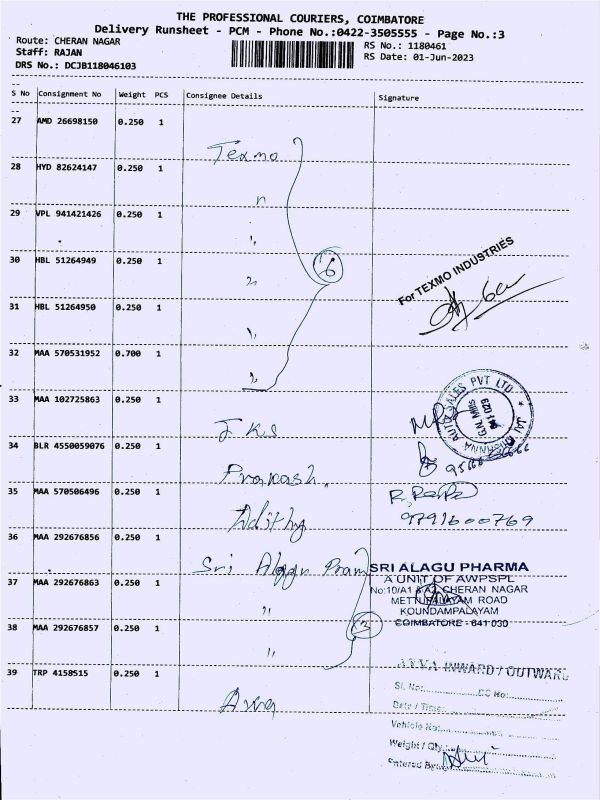 THE PROFESSIONAL COURIERS, COIMBATORE
Delivery Runsheet - PCM - Phone No.:0422-3505555 - Page No.:3
Route: CHERAN NAGAR
Staff: RAJAN
DRS No.: DCJB118046103
RS No.: 1180461
RS Date: 01-Jun-2023
S No Consignment No Weight PCS Consignee Details Signature
27 AMD 26698150 0.250 1
Texmo
28 HYD 82624147 0.250 1
29 VPL 941421426 0.250 1
30 HBL 51264949 0.250 1
6
For TEXMO INDUSTRIES
31 HBL 51264950 0.250 1
32 MAA 570531952 0.700 1
33 MAA 102725863 0.250 1
J KS
JAI KRISHNNA AUTO SALES PVT LTD
G.N. Mills
641 029
34 BLR 4550059076 0.250 1
Prakash.
35 MAA 570506496 0.250 1
9791600769
36 MAA 292676856 0.250 1
Sri Alagu
SRI ALAGU PHARMA
A UNIT OF AWPSPL
No:10/A1 & A2, CHERAN NAGAR
METTUPALAYAM ROAD
KOUNDAMPALAYAM
COIMBATORE - 641 030
37 MAA 292676863 0.250 1
"
38 MAA 292676857 0.250 1
3
"
39 TRP 4158515 0.250 1
INWARD / OUTWARD
Sl. No: DC No:
Date / Time:
Vehicle No:
Weight / Qty
Entered By: